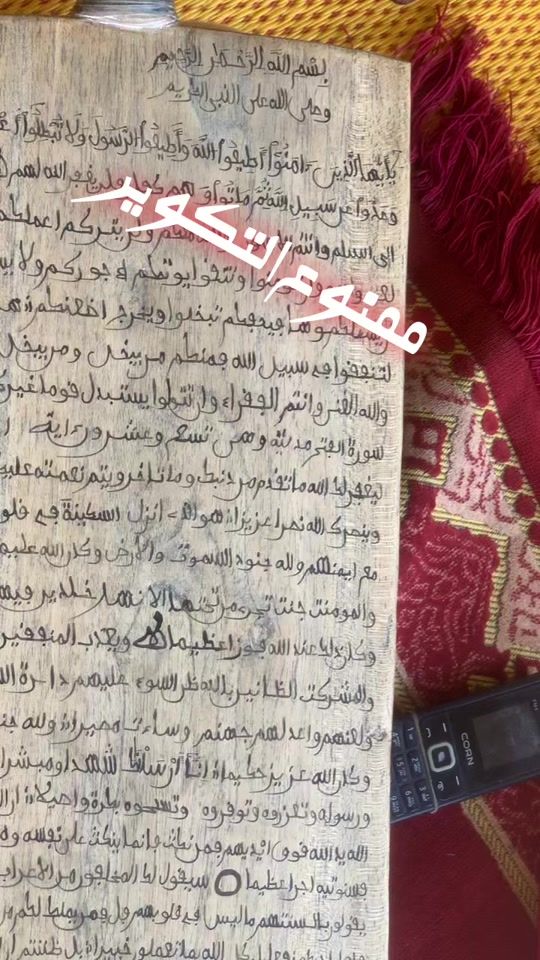 بسم الله الرحمن الرحيم
وصلى الله على النبي الكريم
يأيها الذين ءامنوا أطيعوا الله وأطيعوا الرسول ولا تبطلوا أع
وصدوا عن سبيل الله ثم ماتوا وهم كفار فلن يغفر الله لهم
الى السلم وانتم ولن يتركم اعملكم
وتتقوا يوتكم أجوركم ولا يس
يسئلكموها فيحفكم تبخلوا ويخرج اضغنكم
لتنفقوا في سبيل الله فمنكم من يبخل ومن يبخل
والله الغني وانتم الفقراء وإن تتولوا يستبدل قوما غيرك
سورة الفتح مدنية وهي تسع وعشرون ءاية
ليغفر لك الله ما تقدم من ذنبك وما تأخر ويتم نعمته عليك
وينصرك الله نصرا عزيزا هو الذي أنزل السكينة في قلو
مع ايمنهم ولله جنود السموت والأرض وكان الله عليم
والمومنت جنت تجري من تحتها الانهر خلدين فيه
وكان ذلك عند الله فوزا عظيما ويعذب المنفقين
والمشركت الظانين بالله ظن السوء عليهم دائرة ال
ولعنهم وأعد لهم جهنم وساءت مصيرا ولله جن
وكان الله عزيزا حكيما انا أرسلنك شهدا ومبشرا
ورسوله وتعزروه وتوقروه وتسبحوه بكرة وأصيلا ان ال
الله يد الله فوق ايديهم فمن نكث فانما ينكث على نفسه وم
فسنوتيه اجرا عظيما سيقول لك المخلفون من الاعراب
يقولون بالسنتهم ما ليس في قلوبهم قل فمن يملك لكم من
كان الله بما تعملون خبيرا بل ظننتم ا
مفنوم التكوير
CORN